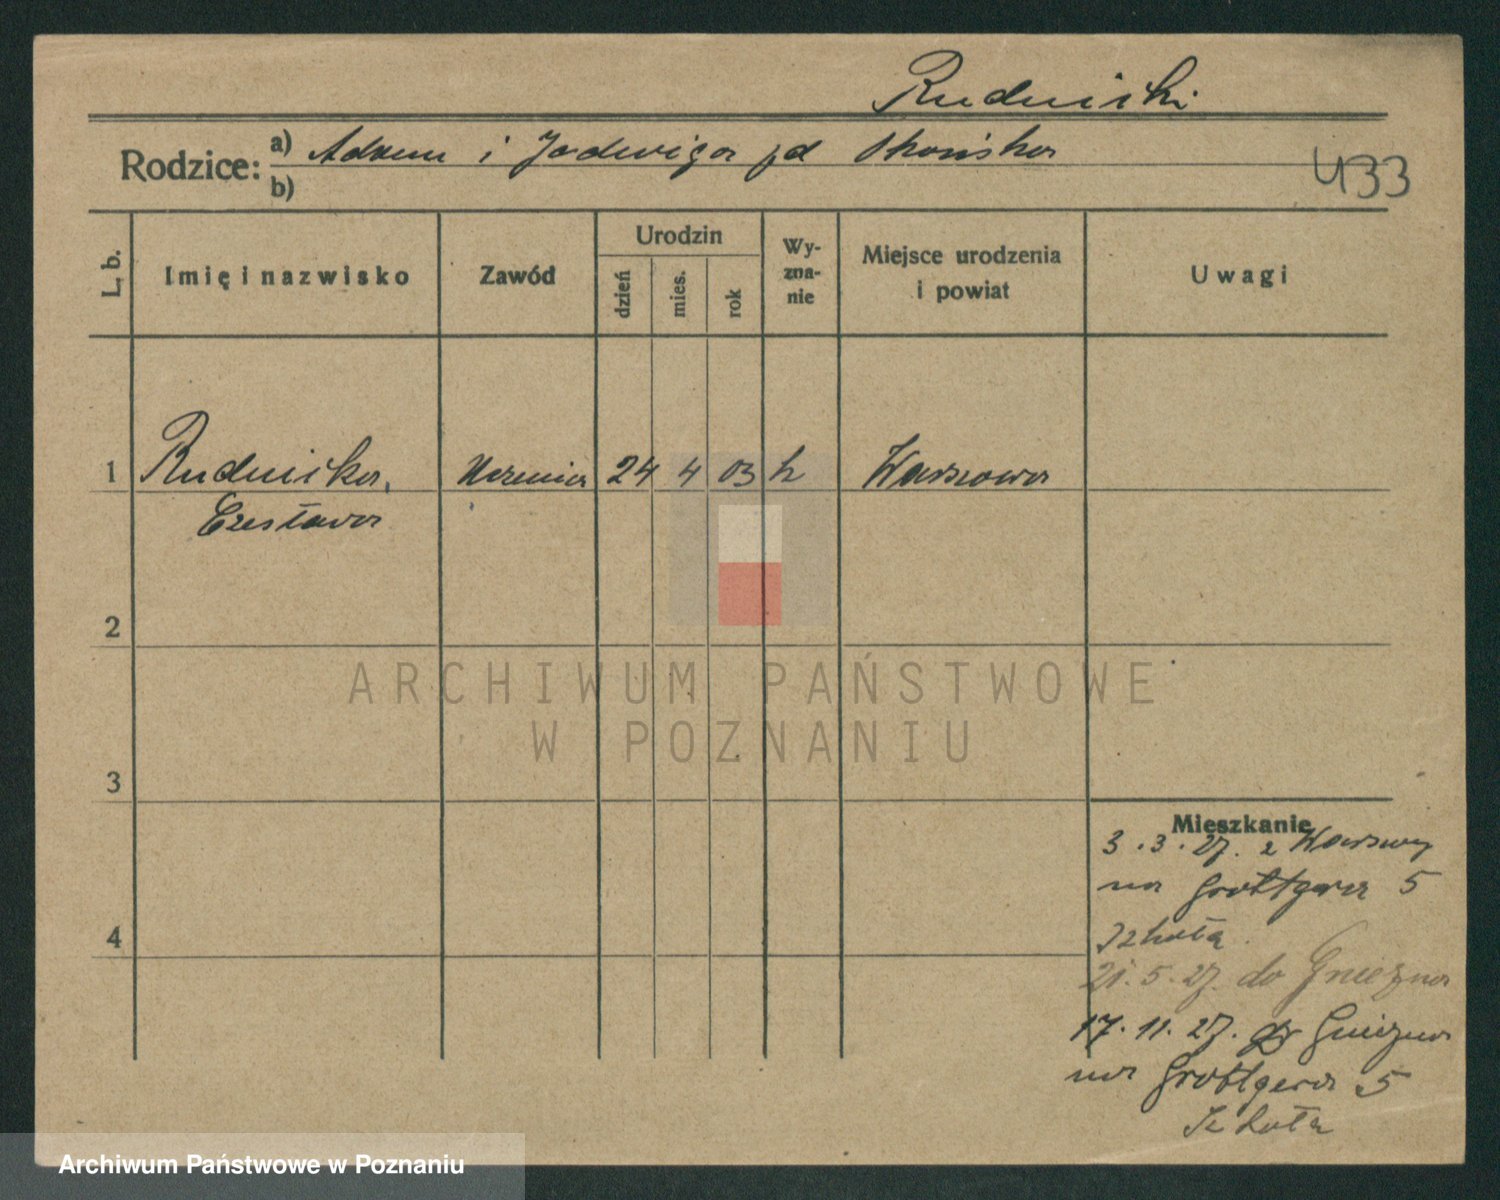 Rudnicki
Rodzice: a) Adam i Jadwiga pd
b)
433
L. b.
Imię i nazwisko
Zawód
Urodzin
dzień
mies.
rok
Wy-
zna-
nie
Miejsce urodzenia
i powiat
Uwagi
1 Rudnicka, Uczenica 24 4 03 k Warszawa
Czesława
2
3
4
Mieszkanie
3.3.27. z Warszawy
na Grottgera 5
Szkoła
21.5.27. do Gniezna
17.11.27. Gniezna
na Grottgera 5
Szkoła
ARCHIWUM PAŃSTWOWE
W POZNANIU
Archiwum Państwowe w Poznaniu